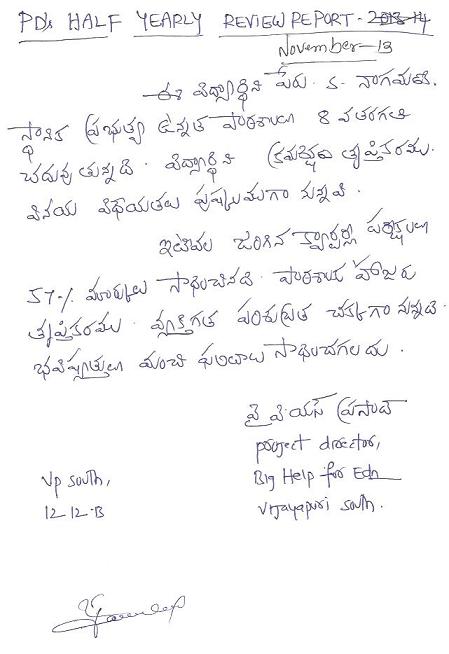 PD's HALF YEARLY REVIEW REPORT - 2013-14
November-13
ఈ విద్యార్థిని పేరు. కె. నాగమణి.
స్థానిక ప్రభుత్వ ఉన్నత పాఠశాలలో 8 వ తరగతి
చదువుతున్నది. విద్యార్థిని క్రమశిక్షణ తృప్తికరము.
వినయ విధేయతలు పుష్కలముగా నున్నవి.
ఇటీవల జరిగిన క్వార్టర్లీ పరీక్షలలో
57% మార్కులు సాధించినది. పాఠశాల హాజరు
తృప్తికరము. వ్యక్తిగత పరిశుభ్రత చక్కగా నున్నది.
భవిష్యత్తులో మంచి ఫలితాలు సాధించగలదు.
వై వి యస్ ప్రసాద్
project director,
Big Help for Edn
Vijayapuri South.
VP South,
12-12-13